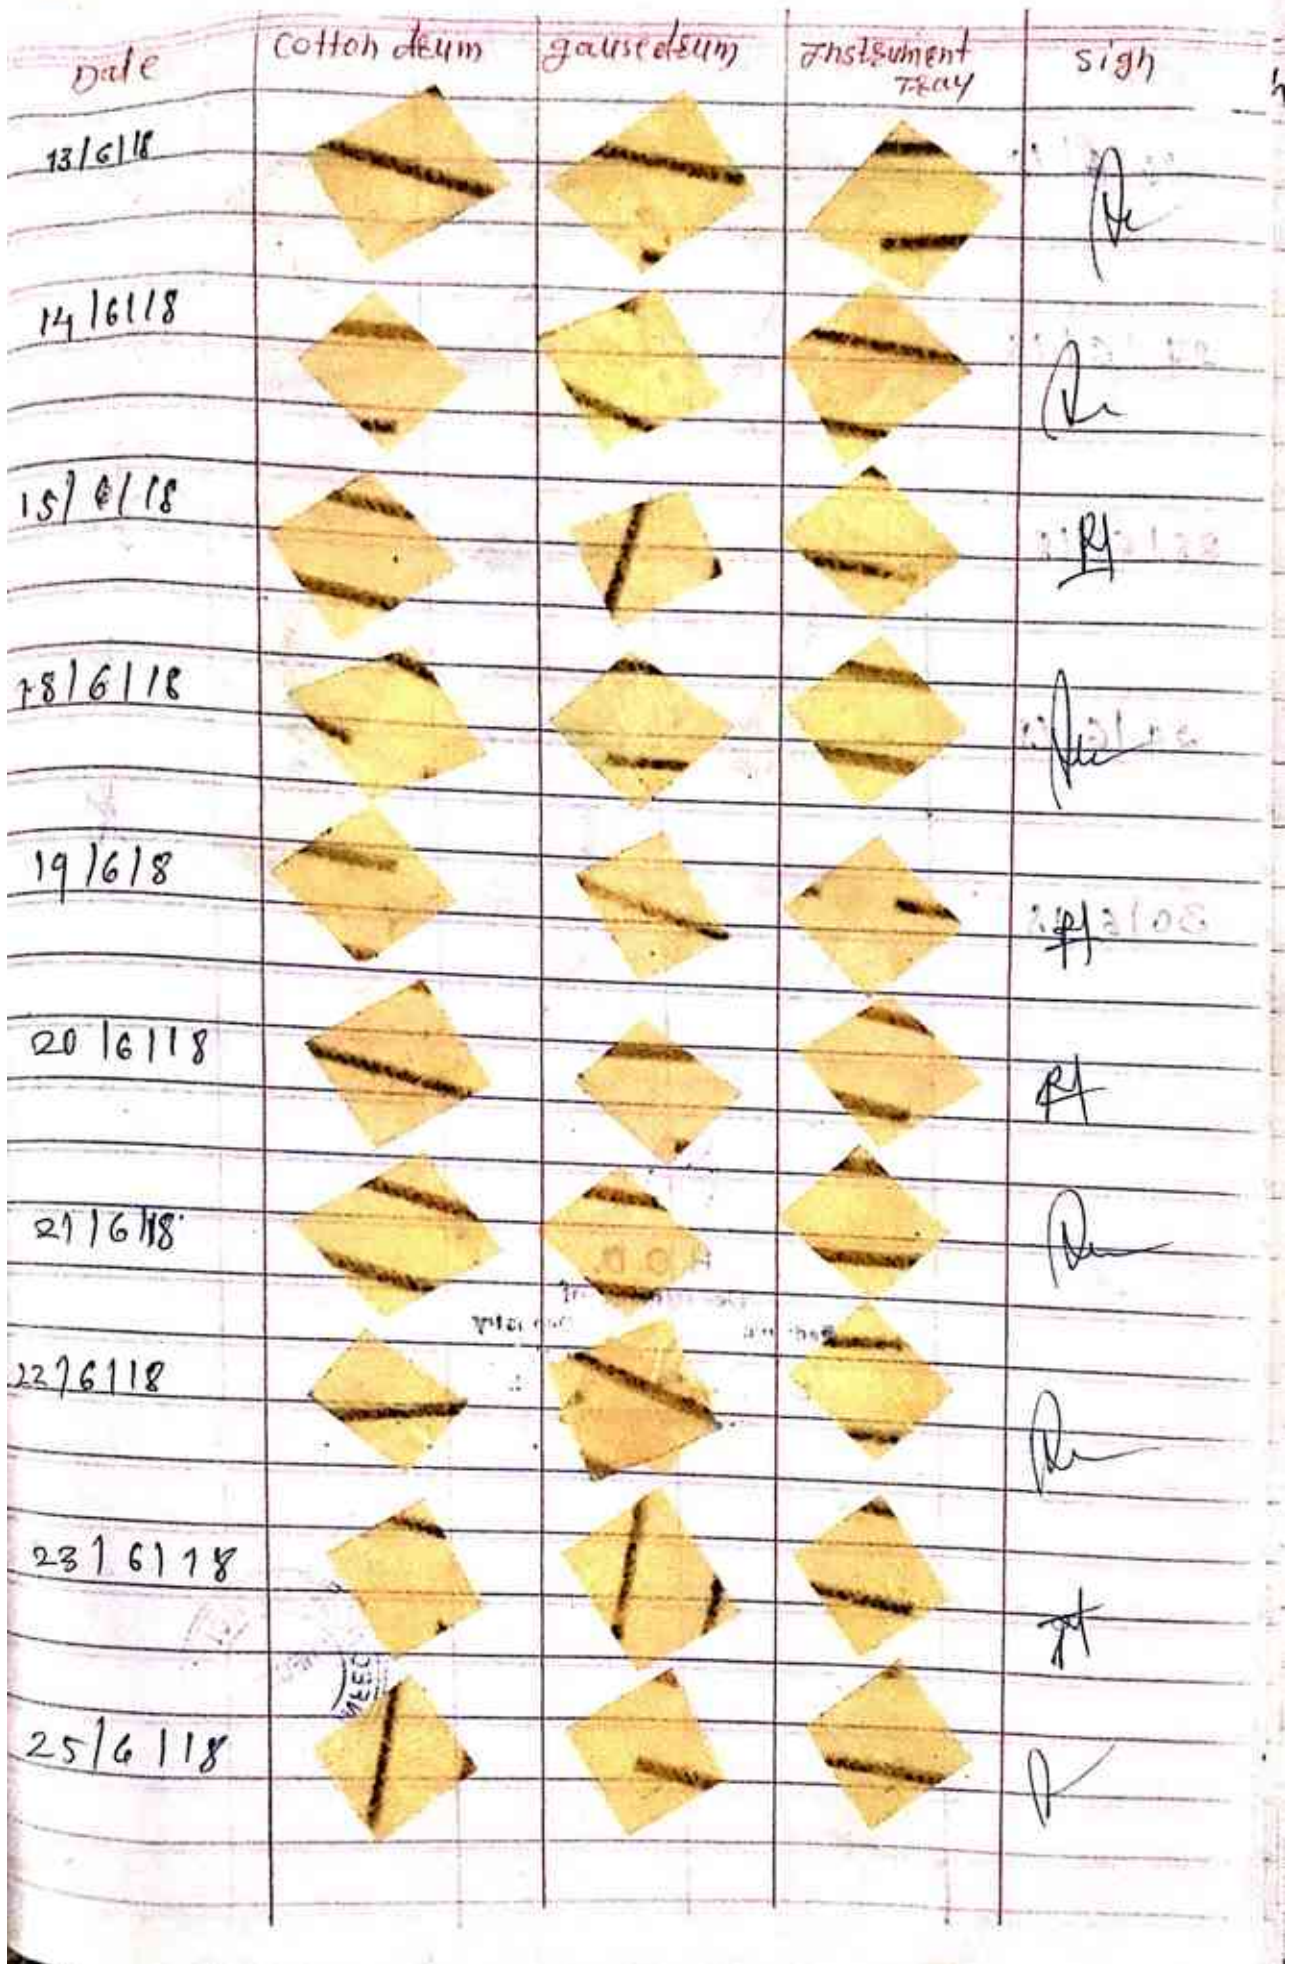 Date cotton drum gausedrum Instrument sign
Tray
13/6/18
14/6/18
15/6/18
18/6/18
19/6/8
20/6/18
21/6/18
22/6/18
23/6/18
25/6/18